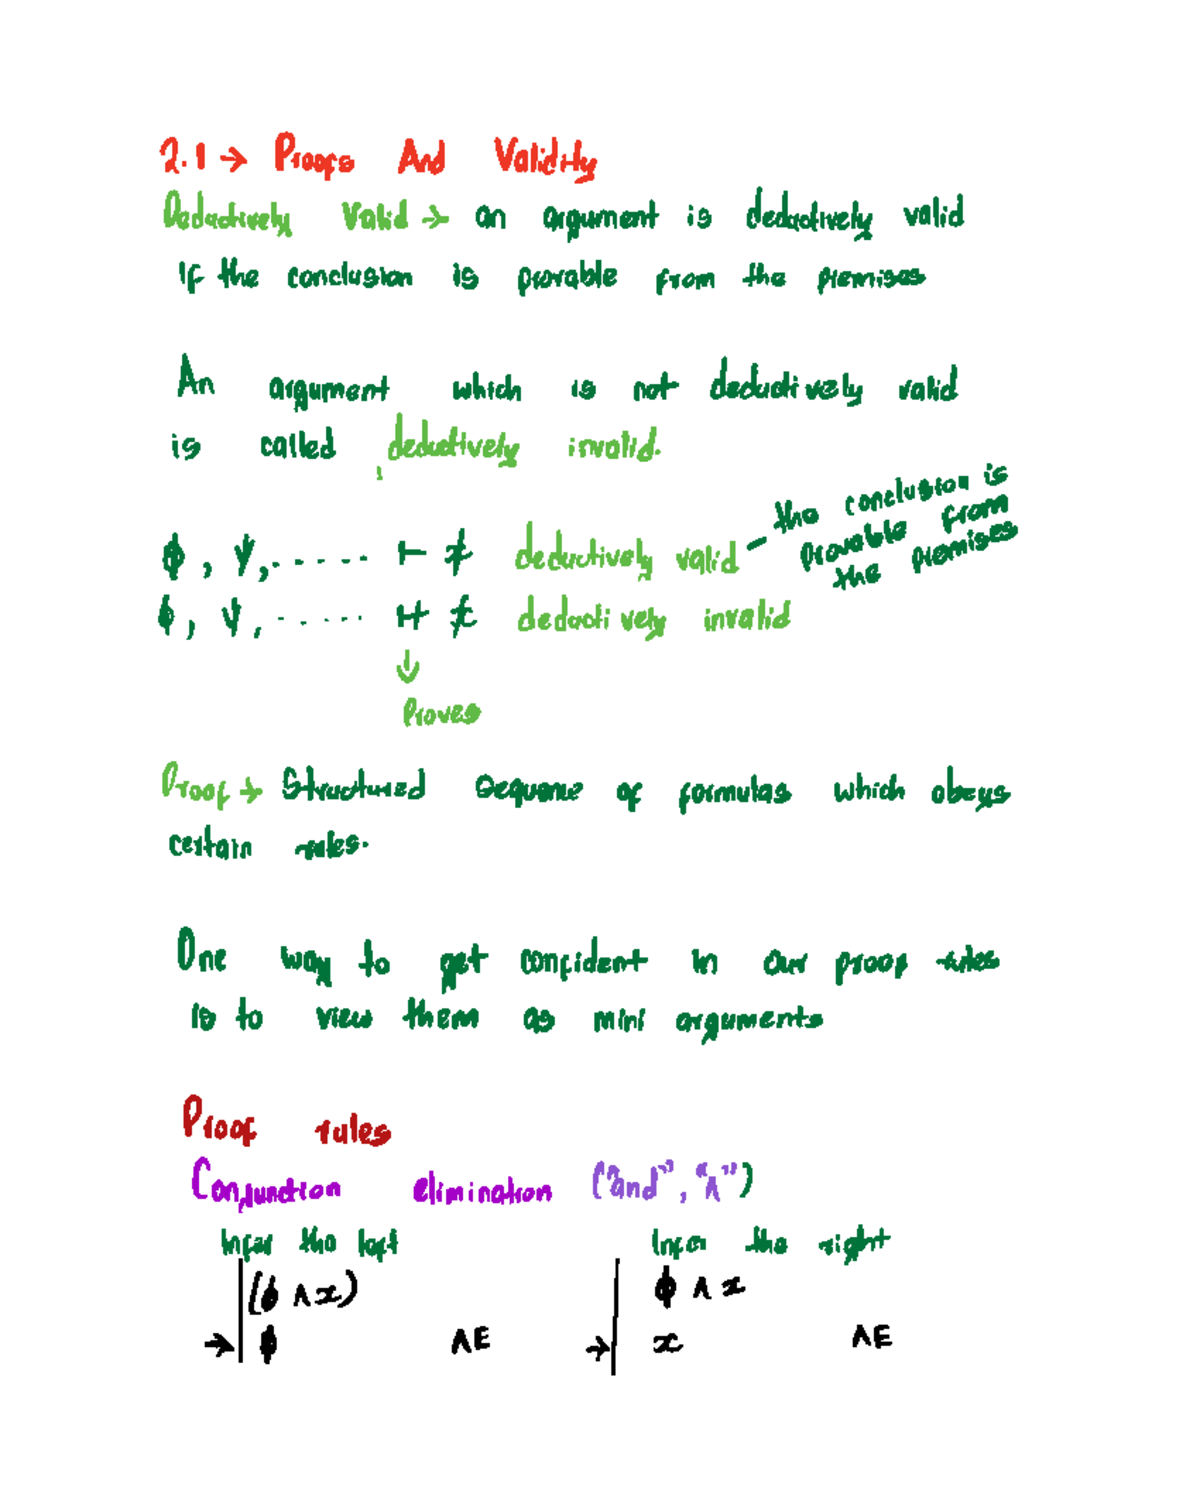 2.1 → Proofs And Validity
Deductively Valid → an argument is deductively valid
If the conclusion is provable from the premises
An argument which is not deductively valid
is called deductively invalid.
ϕ, ψ, ..... ⊢ x deductively valid – the conclusion is
provable from
the premises
ϕ, ψ, ...... ⊬ x deductively invalid
↓
Proves
Proof → Structured sequence of formulas which obeys
certain rules.
One way to get confident in our proof rules
is to view them as mini arguments
Proof rules
Conjunction elimination ("and", "∧")
Infer the left Infer the right
(ϕ ∧ x) ϕ ∧ x
→ ϕ ∧E → x ∧E